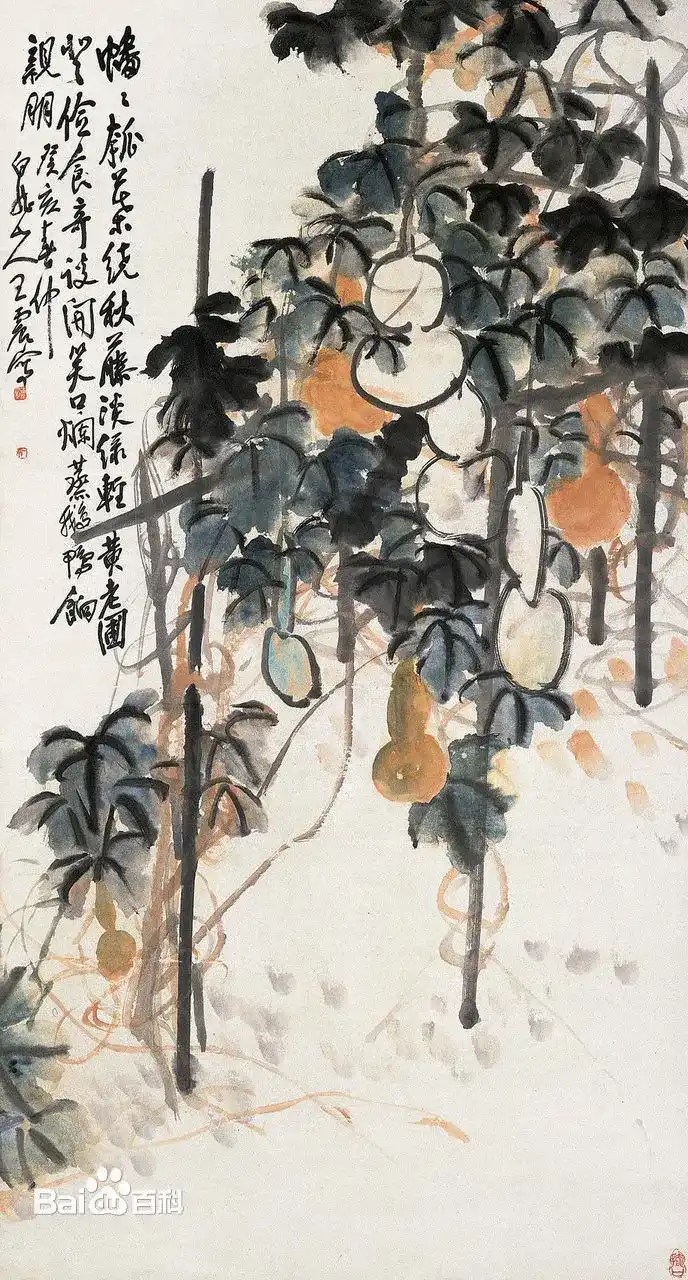 幡〻瓠葉繞秋藤淡綠輕黃老圃
登儉食奇談開笑口爛蒸鵝鴨餉
親朋 癸亥春仲
白龍山人王震寫
Baidu百科